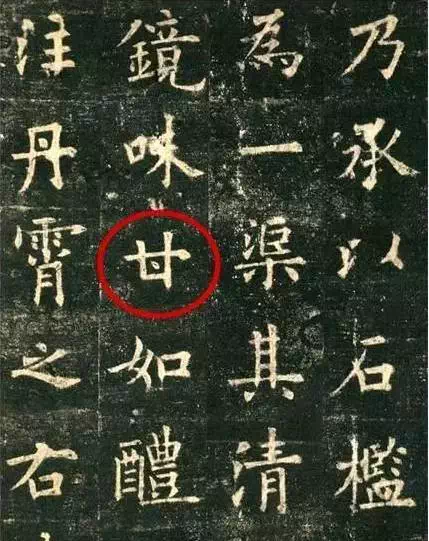 乃承以石檻
為一渠其清
鏡味甘如醴
注丹霄之右